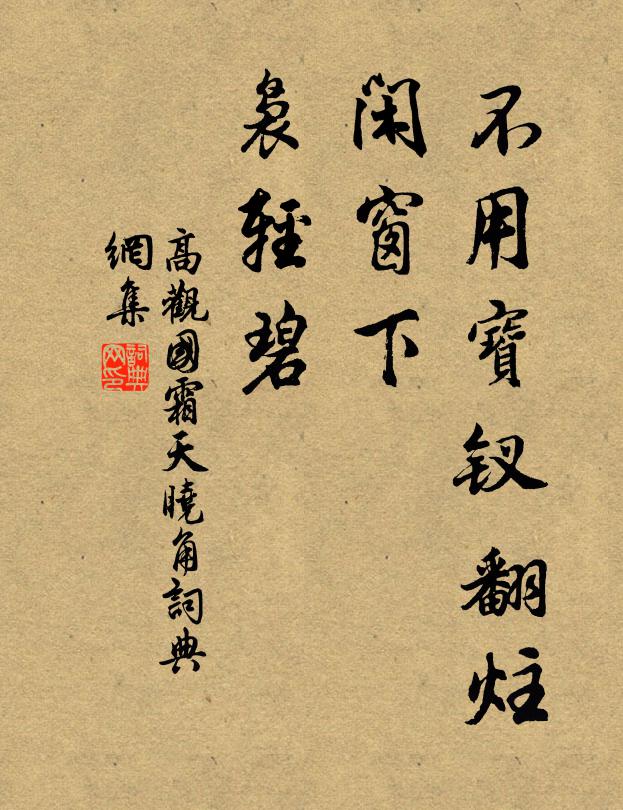 不用寶釵翻炷
閑窗下
裊輕碧
高觀國霜天曉角詞典
網集
詞典
网印